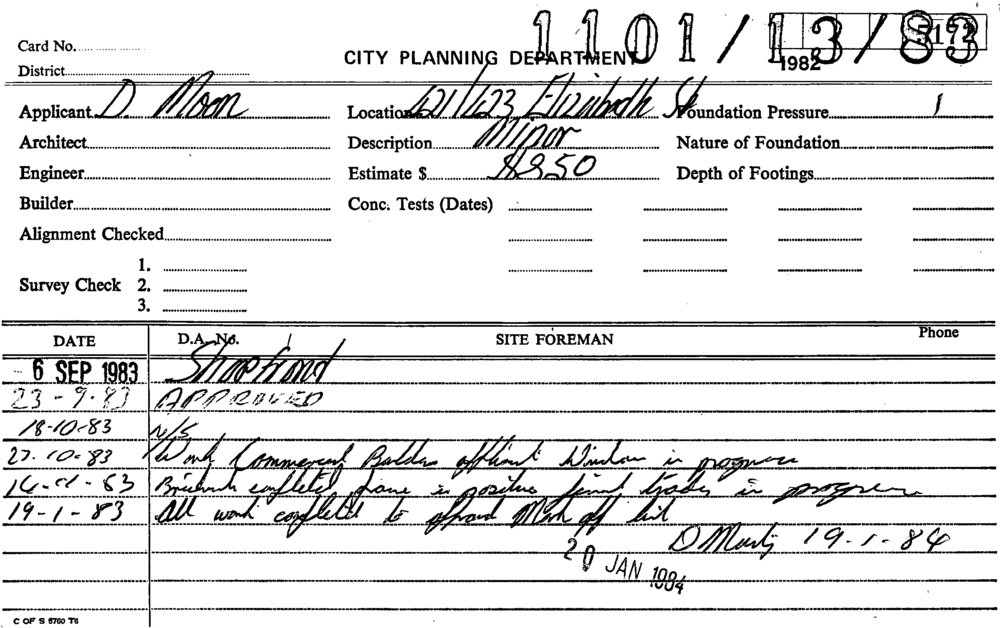 1101/13/83
5172
1982
Card No.
District
CITY PLANNING DEPARTMENT
Applicant D. Moon
Location 421/423 Elizabeth St
Foundation Pressure
Architect
Description Minor
Nature of Foundation
Engineer
Estimate $ $850
Depth of Footings
Builder
Conc. Tests (Dates)
Alignment Checked
Survey Check 1.
2.
3.
DATE D.A. No. SITE FOREMAN Phone
6 SEP 1983 Shopfront
23-9-83 APPROVED
18-10-83 N/S
27.10-83 Work Commenced Window in progress
83 Brickwork completed frame in position final trades in progress
19-1-83 All work completed to Mark off list
19-1-84
20 JAN 1984
C OF S 6760 T6